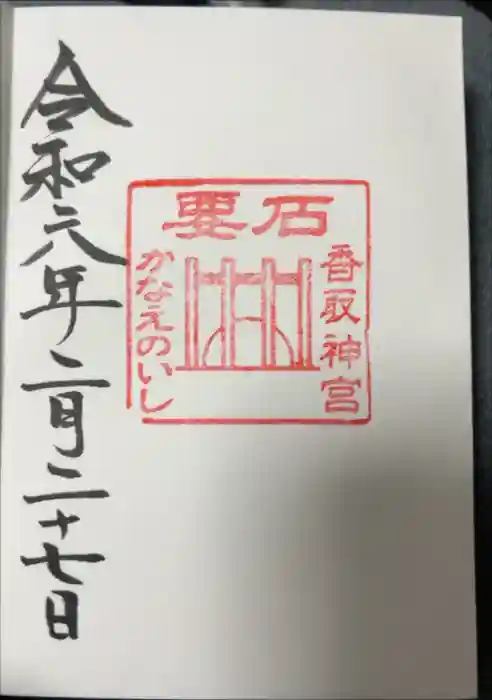 要石
香取神宮
かなえのいし
令和六年二月二十七日